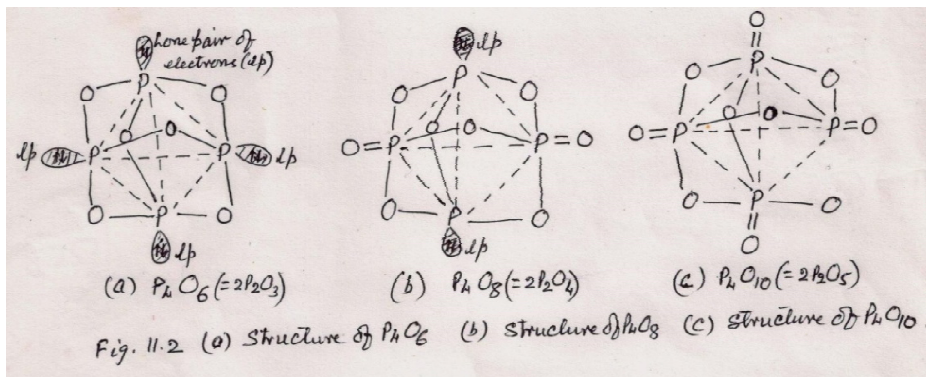 Lone pair of
electrons (lp)
lp
O
O
P
P
P
P
O
O
O
O
lp
lp
lp
(a) P4O6 (=2P2O3)
lp
P
O
O
O
O
O=P
P=O
O
O
P
lp
(b) P4O8 (=2P2O4)
O
P
O
O
O
O
O=P
P=O
O
O
P
O
(c) P4O10 (=2P2O5)
Fig. 11.2 (a) Structure of P4O6 (b) Structure of P4O8 (c) Structure of P4O10